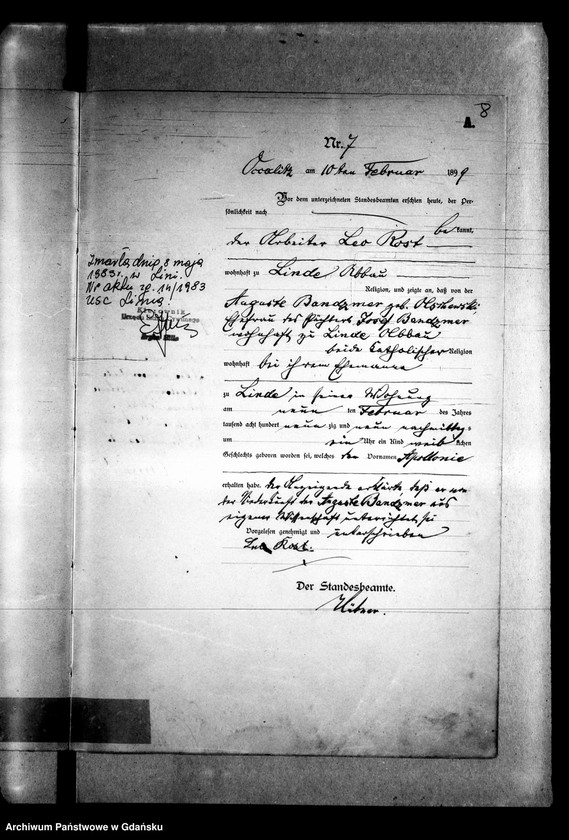 8
A.
Nr. 7
Occalitz am 10ten Februar 1899
Vor dem unterzeichneten Standesbeamten erschien heute, der Per-
sönlichkeit nach
bekannt,
der Arbeiter Leo Rost
wohnhaft zu Linde Abbau
Religion, und zeigte an, daß von der
Auguste Bandzmer geb. Olschewski
Ehefrau des Pächters Josef Bandzmer
wohnhaft zu Linde Abbau
beide katholischer Religion
wohnhaft bei ihrem Ehemanne
zu Linde in seiner Wohnung
am neun ten Februar des Jahres
tausend acht hundert neun zig und neun nachmittags
um ein Uhr ein Kind weib lichen
Geschlechts geboren worden sei, welches den Vornamen Apollonie
erhalten habe. Der Anzeigende erklärte daß er von
der Niederkunft der Auguste Bandzmer aus
eigener Wissenschaft unterrichtet sei
Vorgelesen genehmigt und unterschrieben
Leo Rost.
Der Standesbeamte.
Zmarła dnia 8 maja
1983 r. w Lini.
Nr aktu zg. 14/1983
USC Linia!
Kierownik
Archiwum Państwowe w Gdańsku